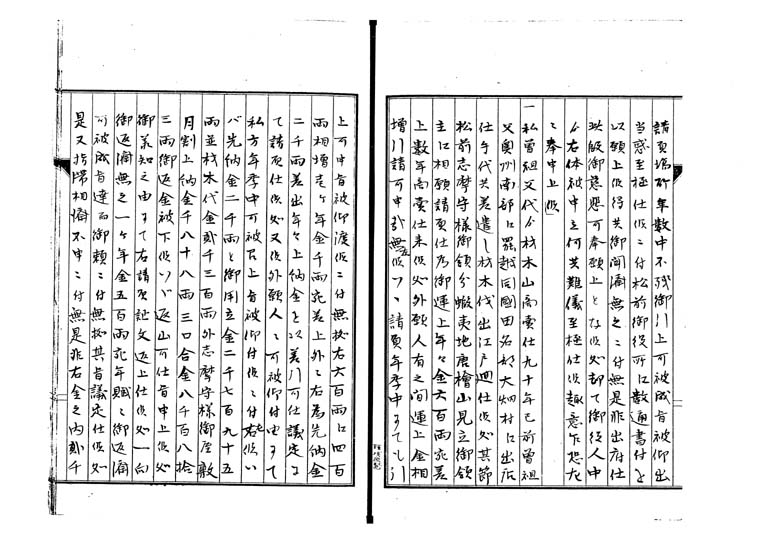 請負場所年数中不残御引上可被成旨被仰出
当惑至極仕候ニ付松前御役所江数通書付を
以願上候得共御聞済無之ニ付無是非出府仕
此段御慈悲可奉願上となく候処却て御役人中
ゟ右体被申立何共難儀至極仕候趣意乍恐左
ニ奉申上候
一私曽祖父代ゟ材木山商売仕九十年已前曽祖
父奥州南部江罷越同国田名部大畑村江出店
仕手代共差遣し材木伐出江戸廻仕候処其節
松前志摩守様御領分蝦夷地唐檜山見立御領
主江相願請負仕為御運上年々金六百両宛差
上数年商売仕来候処外願人有之間運上金相
増引請可申哉無左候ハヽ請負年季中ニても引
上可申旨被仰渡候ニ付無拠右六百両江四百
両相増壱ケ年金千両宛差上外ニ右為先納金
二千両差出年々上納金を以差引可仕議定ニ
て請負仕候処又候外願人ニ可被仰付由ニて
私方年季中可被召上旨被仰付候ニ付右候ハ
ハ先納金二千両と御用立金二千七百九十五
両並材木代金弐千三百両外志摩守様御屋敷
月割上納金千八十八両三口合金八千百八拾
三両御返金被下候ハヽ返山可仕旨申上候処
御承知之由ニて右請負証文返上仕候処一向
御返済無之一ケ年金五百両宛年賦ニ御返済
可被成旨達而御頼ニ付無拠其旨議定仕候処
是又折障相済不申ニ付無是非右金之内弐千